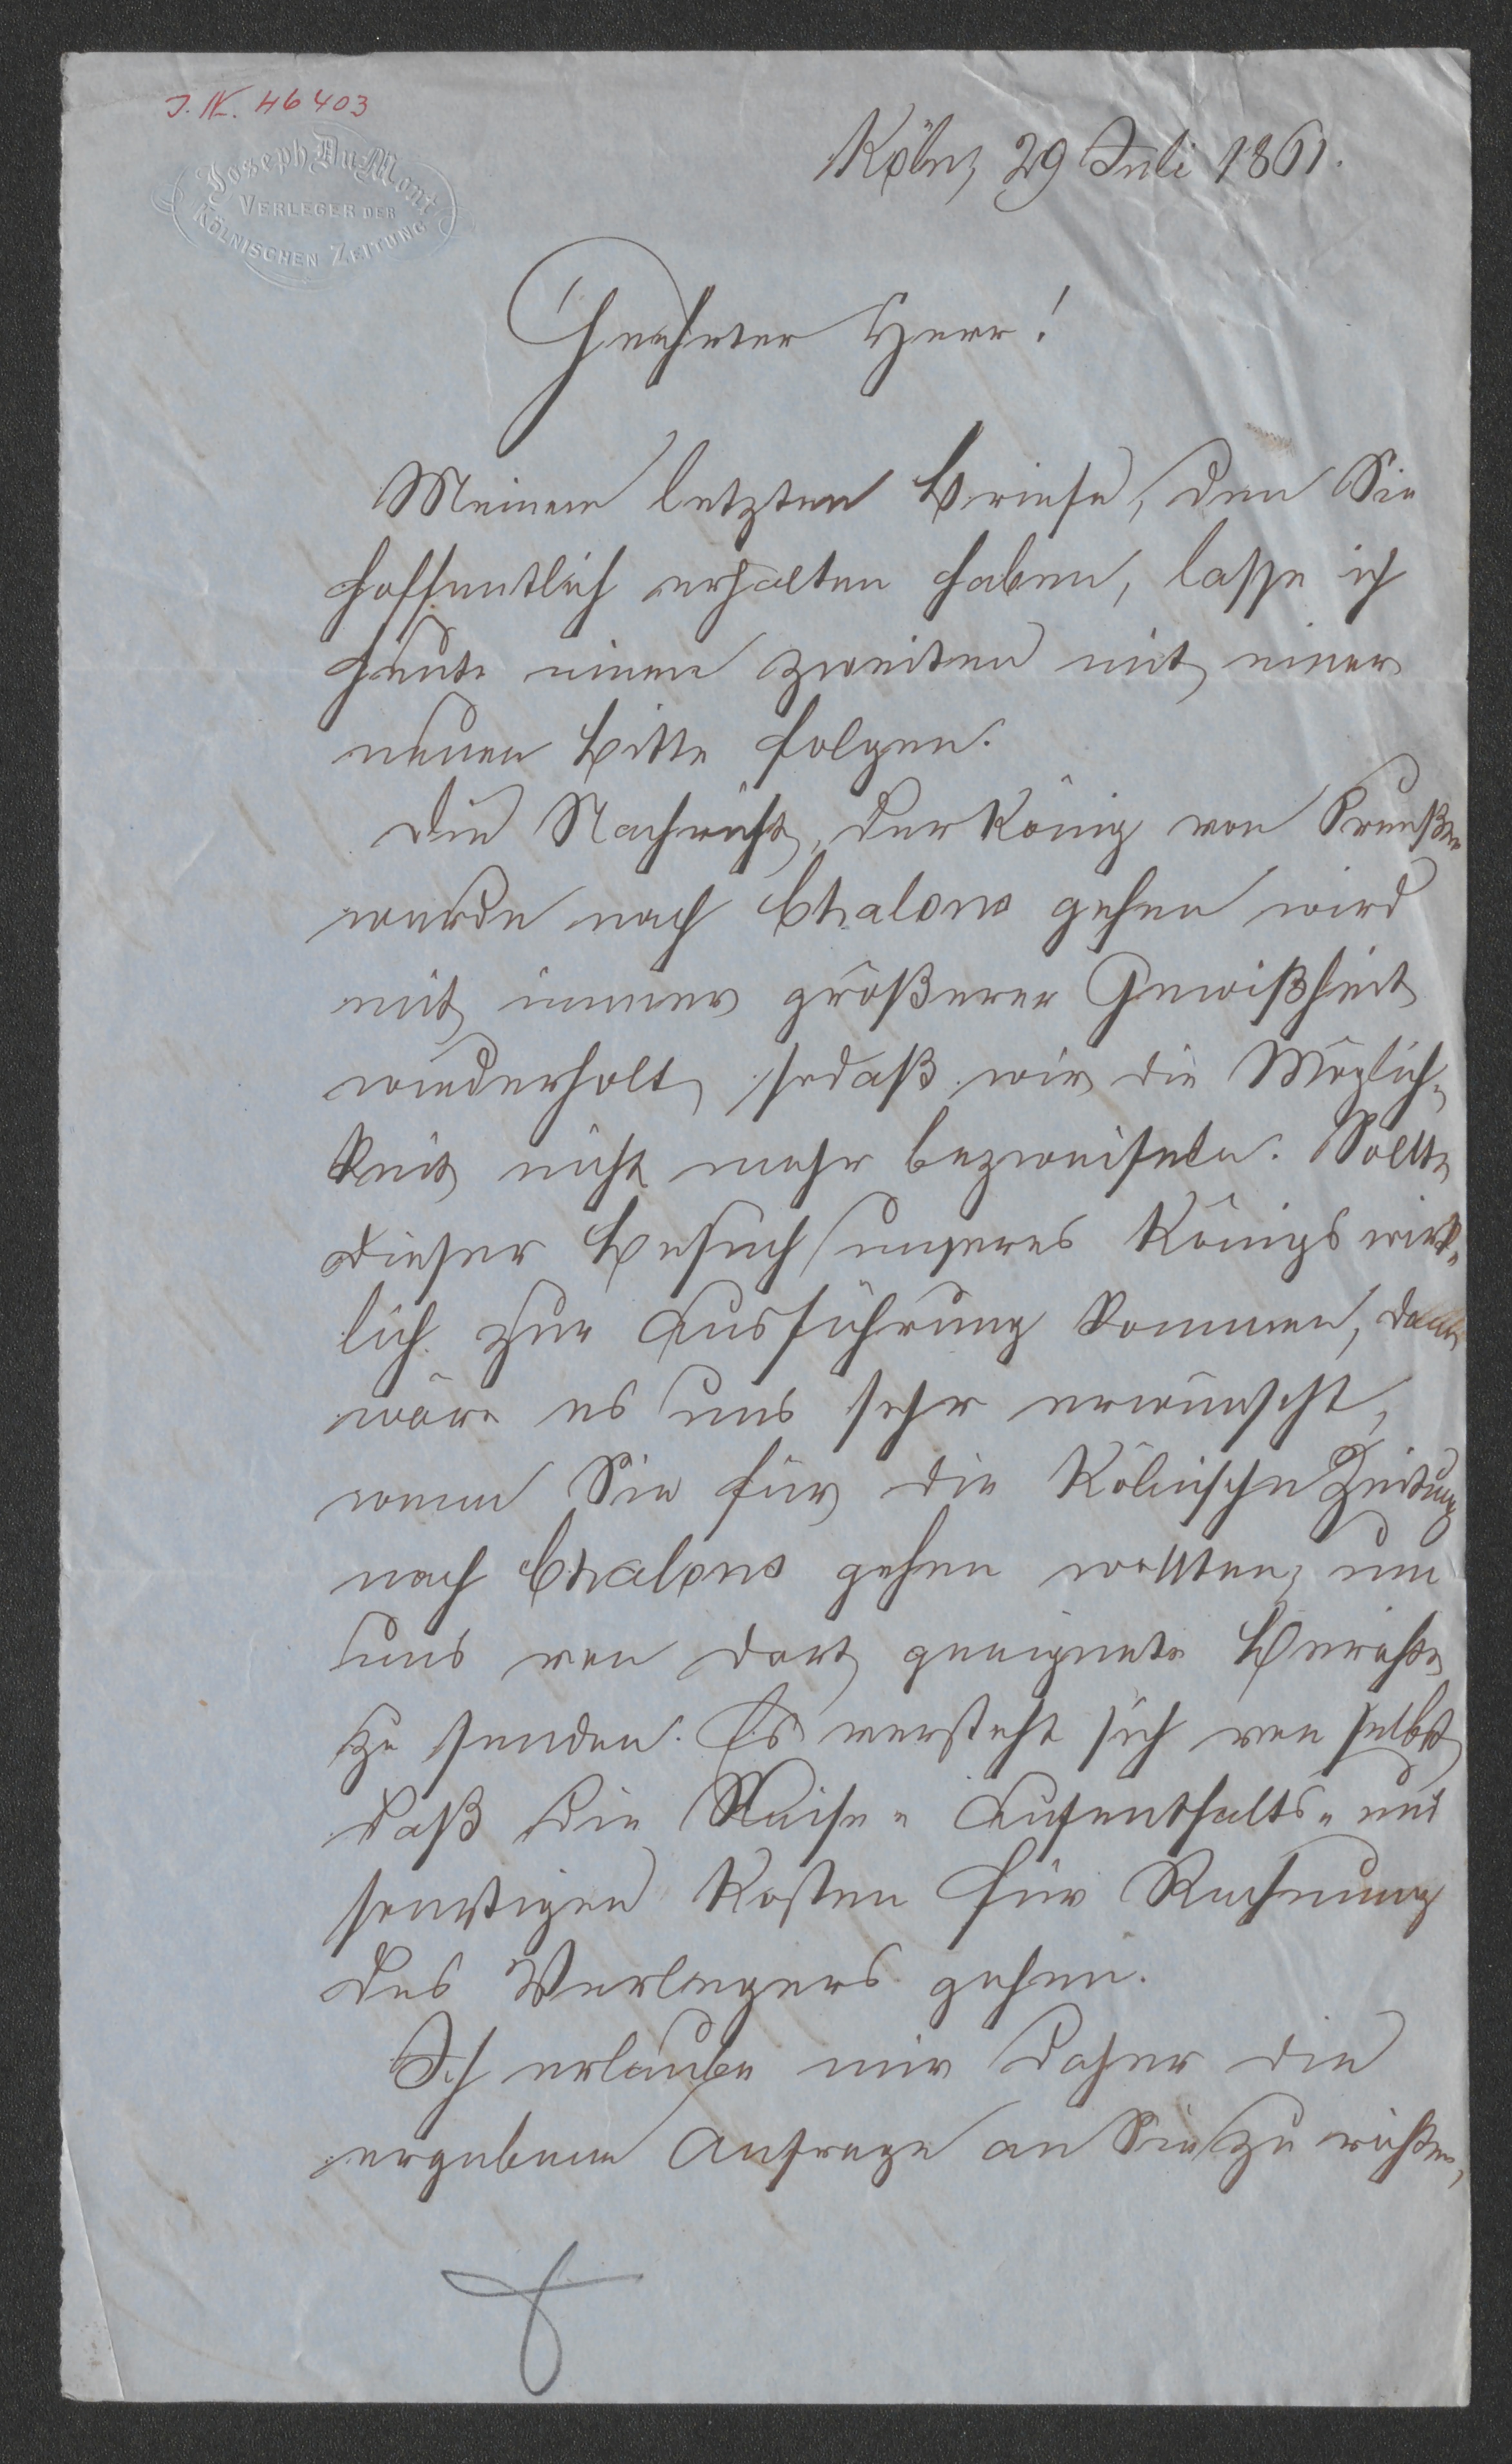 J. N. 46403
Joseph DuMont
VERLEGER DER
KÖLNISCHEN ZEITUNG
Köln, 29 Juli 1861.
Geehrter Herr!
Meinem letzten Briefe, den Sie
hoffentlich erhalten haben, lasse ich
heute einen zweiten mit einer
neuen Bitte folgen.
Die Nachricht, der König von Preußen
werde nach Chalons gehen wird
mit immer größerer Gewißheit
wiederholt, sodaß wir die Möglich-
keit nicht mehr bezweifeln. Sollte
dieser Besuch unseres Königs wirk-
lich zur Ausführung kommen, dann
wäre es uns sehr erwünscht,
wenn Sie für die Kölnische Zeitung
nach Chalons gehen wollten, um
uns von dort geeignete Berichte
zu senden. Es versteht sich von selbst
daß die Reise- Aufenthalts- und
sonstigen Kosten für Rechnung
des Verlegers gehen.
Ich erlaube mir daher die
ergebene Anfrage an Sie zu richten,